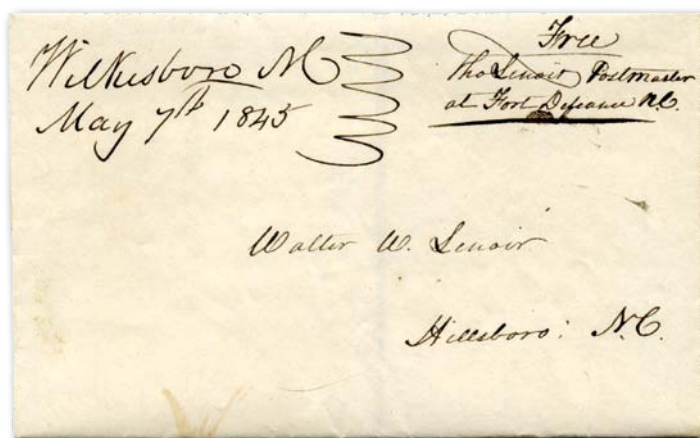 Wilkesboro NC
May 7th 1845
Free
Tho Lenoir Postmaster
at Fort Defiance N.C.
Walter W. Lenoir
Hillsboro: N.C.